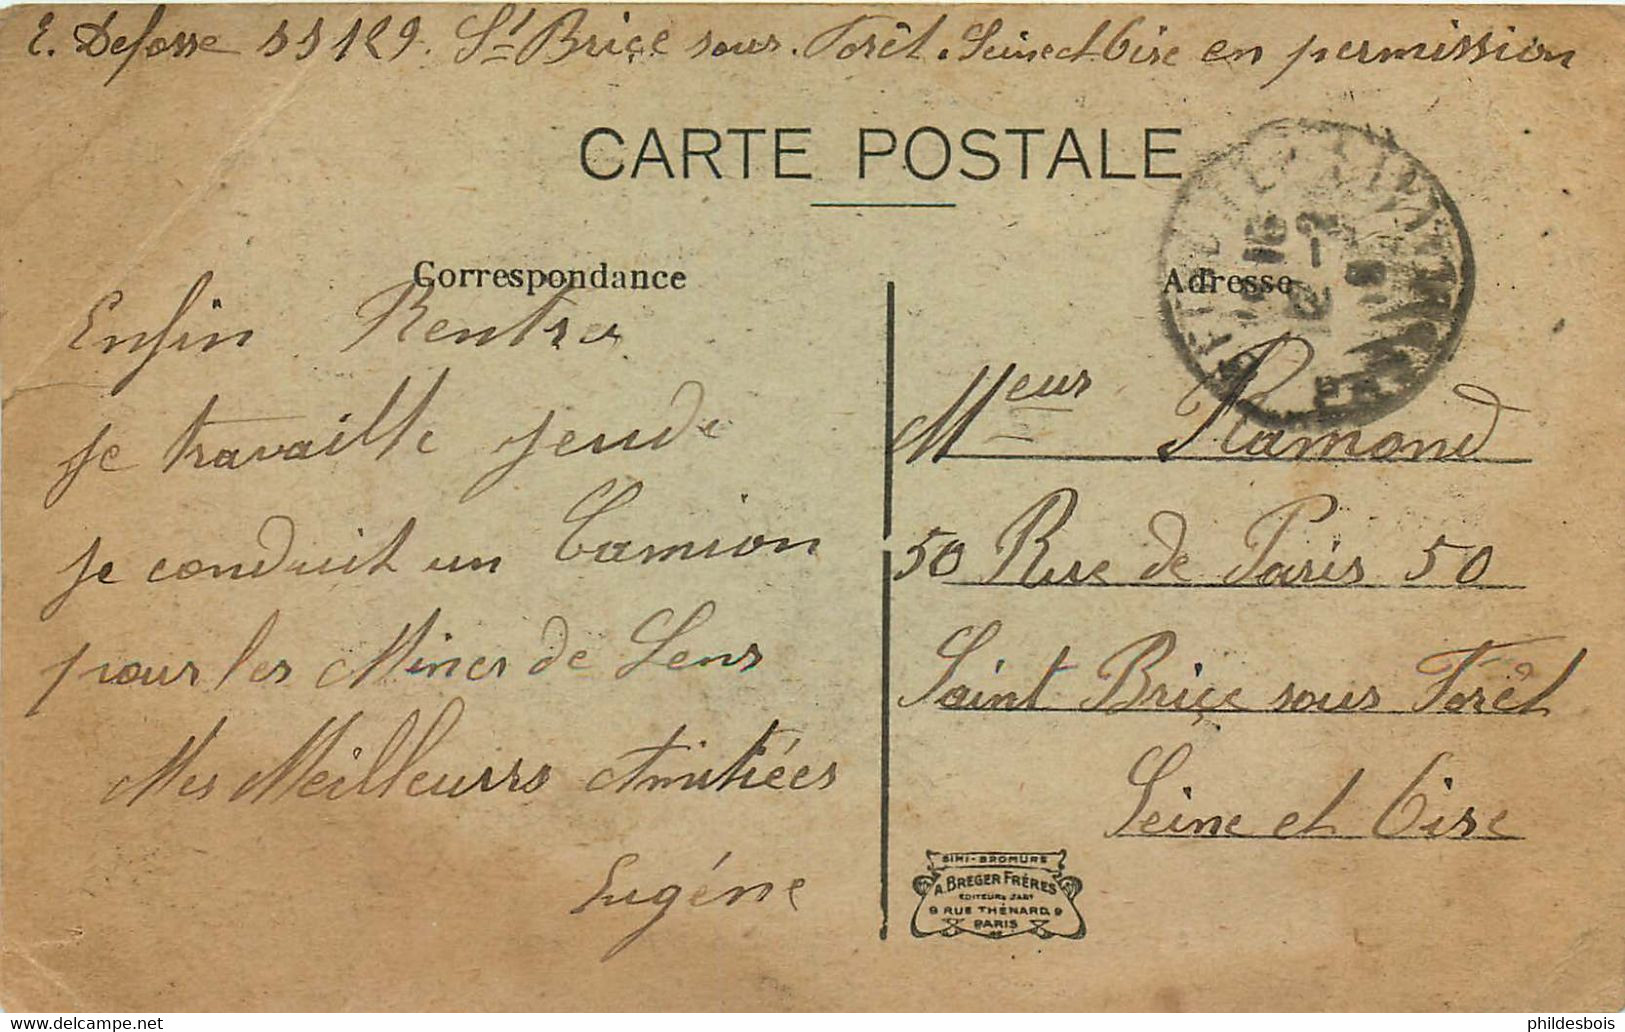 E. Defosse SS 129. St Brice sous. Forêt. Seine et Oise en permission
CARTE POSTALE
Correspondance
Adresse
Enfin Rentrer
je travaille jeudi
je conduit un Camion
pour les Mines de Lens
Mes Meilleurs Amitiées
Eugéne
Meur Ramond
50 Rue de Paris 50
Saint Brice sous Forêt
Seine et Oise
SIMI-BROMURE
A. BREGER FRÈRES
EDITEURS D'ART
9 RUE THÉNARD, 9
PARIS
phildesbois